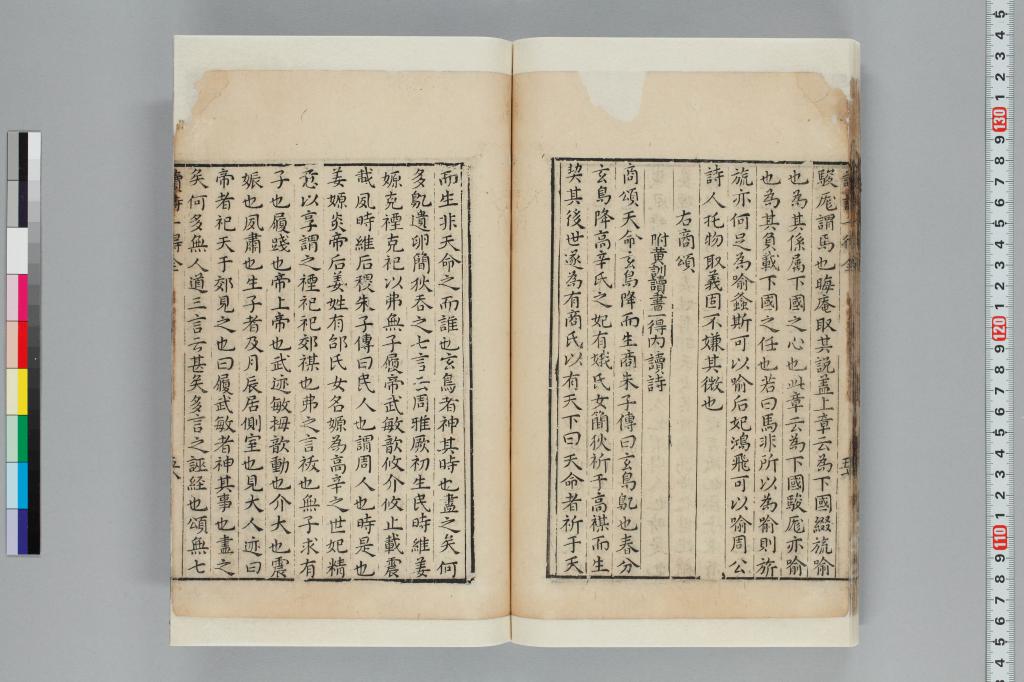 駿厖謂馬也晦庵取其說盖上章云為下國綴旒喻
也為其係属下國之心也此章云為下國駿厖亦喻
也為其負載下國之任也若曰馬非所以為喻則旂
旒亦何足為喻螽斯可以喻后妃鴻飛可以喻周公
詩人托物取義固不嫌其微也
右商頌
附黄訓讀書一得内讀詩
商頌天命玄鳥降而生商朱子傳曰玄鳥鳦也春分
玄鳥降高辛氏之妃有娀氏女簡狄祈于高禖而生
契其後世遂為有商氏以有天下曰天命者祈于天
而生非天命之而誰也玄鳥者神其時也盡之矣何
多鳦遺卵簡狄吞之七言云周雅厥初生民時維姜
嫄克禋克祀以弗無子履帝武敏歆攸介攸止載震
載夙時維后稷朱子傳曰民人也謂周人也時是也
姜嫄炎帝后姜姓有邰氏女名嫄為高辛之世妃精
意以享謂之禋祀祀郊禖也弗之言祓也無子求有
子也履踐也帝上帝也武迹敏拇歆動也介大也震
娠也夙肅也生子者及月辰居側室也見大人迹曰
帝者祀天于郊見之也曰履武敏者神其事也盡之
矣何多無人道三言云甚矣多言之誣経也頌無七
讀詩一得全